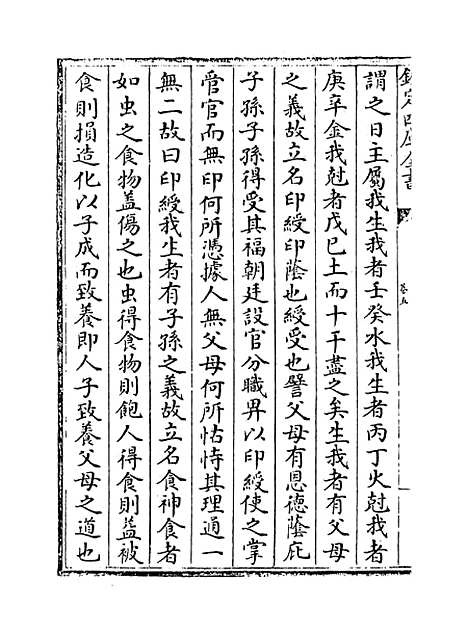 欽定四庫全書
卷五
謂之日主屬我生我者壬癸水我生者丙丁火尅我者
庚辛金我尅者戊巳土而十干盡之矣生我者有父母
之義故立名印綬印蔭也綬受也譬父母有恩德蔭庇
子孫子孫得受其福朝廷設官分職畀以印綬使之掌
管官而無印何所憑據人無父母何所怙恃其理通一
無二故曰印綬我生者有子孫之義故立名食神食者
如虫之食物蓋傷之也虫得食物則飽人得食則益被
食則損造化以子成而致養即人子致養父母之道也